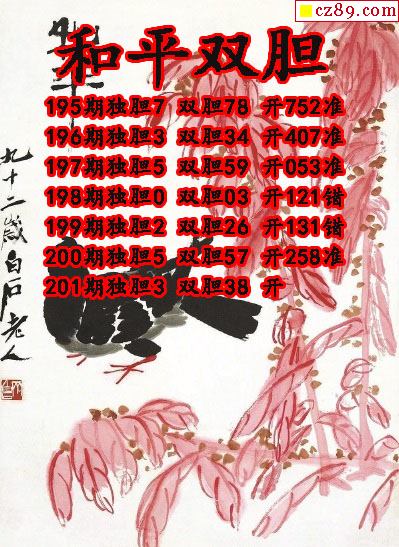 cz89.com
和平双胆
195期独胆7 双胆78 开752准
196期独胆3 双胆34 开407准
197期独胆5 双胆59 开053准
198期独胆0 双胆03 开121错
199期独胆2 双胆26 开131错
200期独胆5 双胆57 开258准
201期独胆3 双胆38 开
九十二岁白石老人